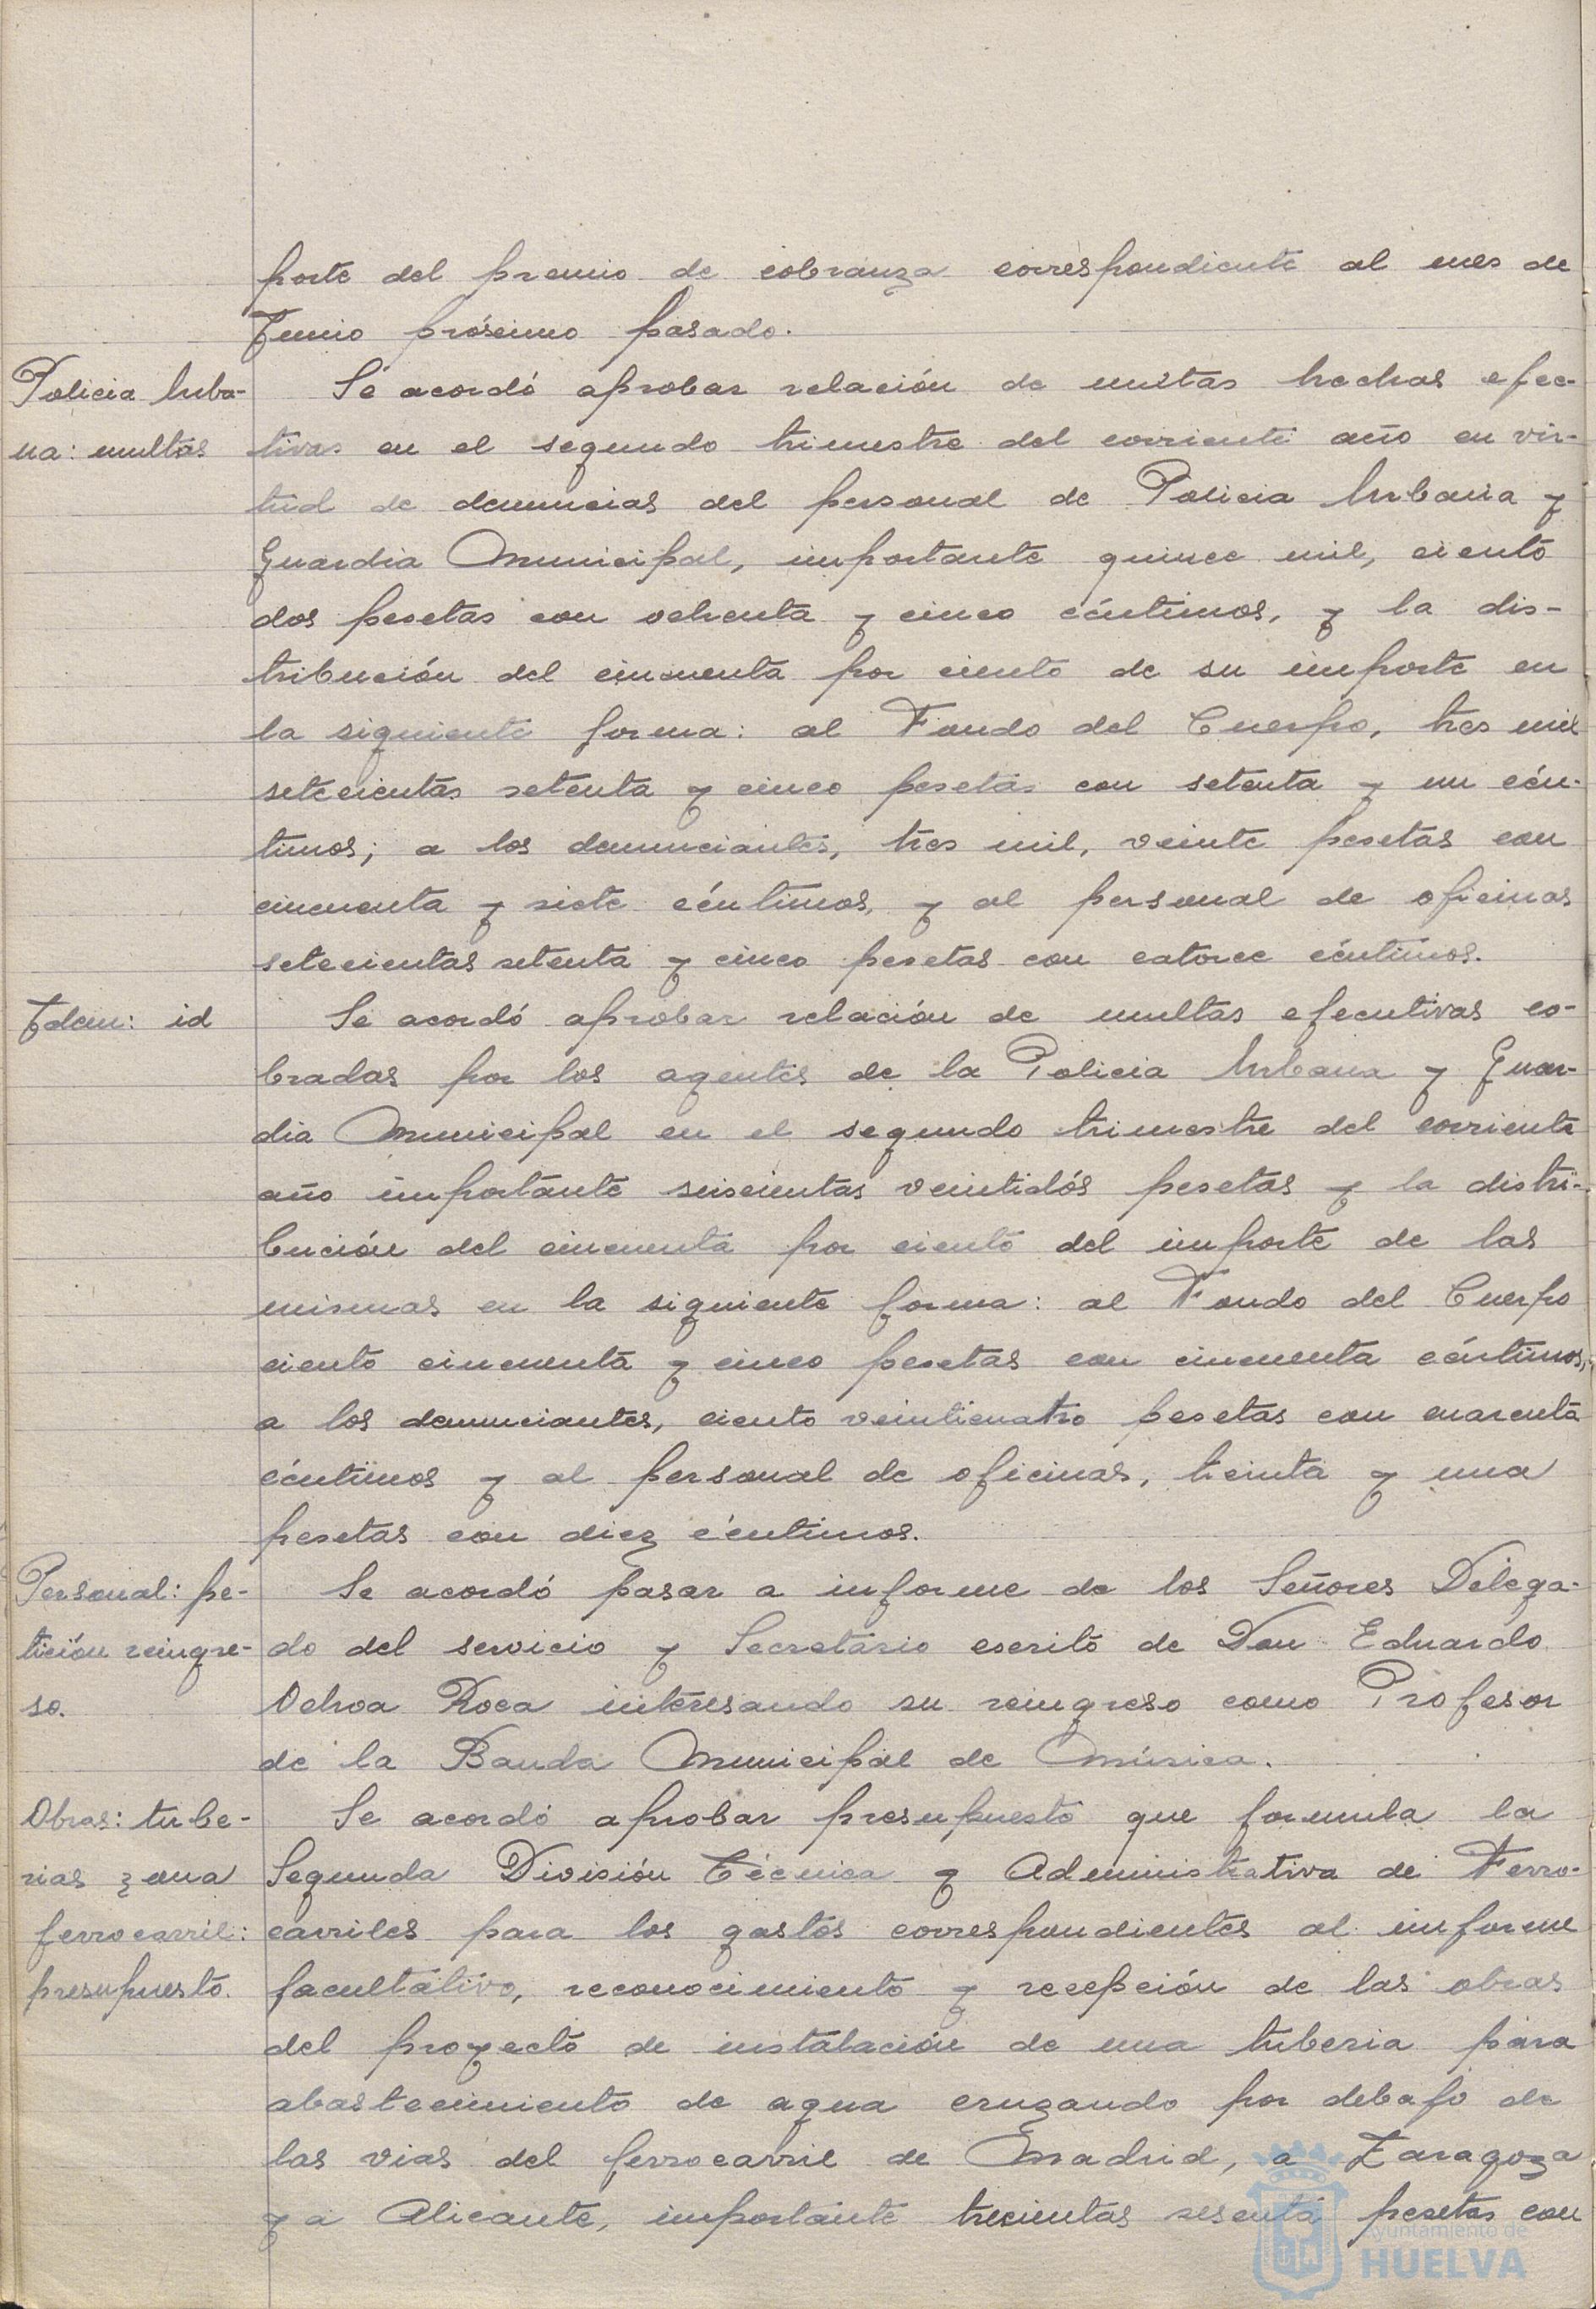 porte del premio de cobranza correspondiente al mes de
Junio próximo pasado.
Policia Urba-
na: multas
Se acordó aprobar relación de multas hechas efec-
tivas en el segundo trimestre del corriente año en vir-
tud de denuncias del personal de Policia Urbana y
Guardia Municipal, importante quince mil, ciento
dos pesetas con ochenta y cinco céntimos, y la dis-
tribución del cincuenta por ciento de su importe en
la siguiente forma: al Fondo del Cuerpo, tres mil
setecientas setenta y cinco pesetas con setenta y un cén-
timos; a los denunciantes, tres mil, veinte pesetas con
cincuenta y siete céntimos, y al personal de oficinas
setecientas setenta y cinco pesetas con catorce céntimos.
Idem: id
Se acordó aprobar relación de multas ejecutivas co-
bradas por los agentes de la Policia Urbana y Guar-
dia Municipal en el segundo trimestre del corriente
año importante seiscientas veintidós pesetas y la distri-
bución del cincuenta por ciento del importe de las
mismas en la siguiente forma: al Fondo del Cuerpo
ciento cincuenta y cinco pesetas con cincuenta céntimos,
a los denunciantes, ciento veinticuatro pesetas con cuarenta
céntimos y al personal de oficinas, treinta y una
pesetas con diez céntimos.
Personal: pe-
tición reingre-
so.
Se acordó pasar a informe de los Señores Delega-
do del servicio y Secretario escrito de Don Eduardo
Ochoa Roca interesando su reingreso como Profesor
de la Banda Municipal de Música.
Obras: tube-
rias zona
ferrocarril:
presupuesto.
Se acordó aprobar presupuesto que formula la
Segunda División Técnica y Administrativa de Ferro-
carriles para los gastos correspondientes al informe
facultativo, reconocimiento y recepción de las obras
del proyecto de instalación de una tuberia para
abastecimiento de agua cruzando por debajo de
las vias del ferrocarril de Madrid, a Zaragoza
y a Alicante, importante trecientas sesenta pesetas con
Ayuntamiento de
HUELVA